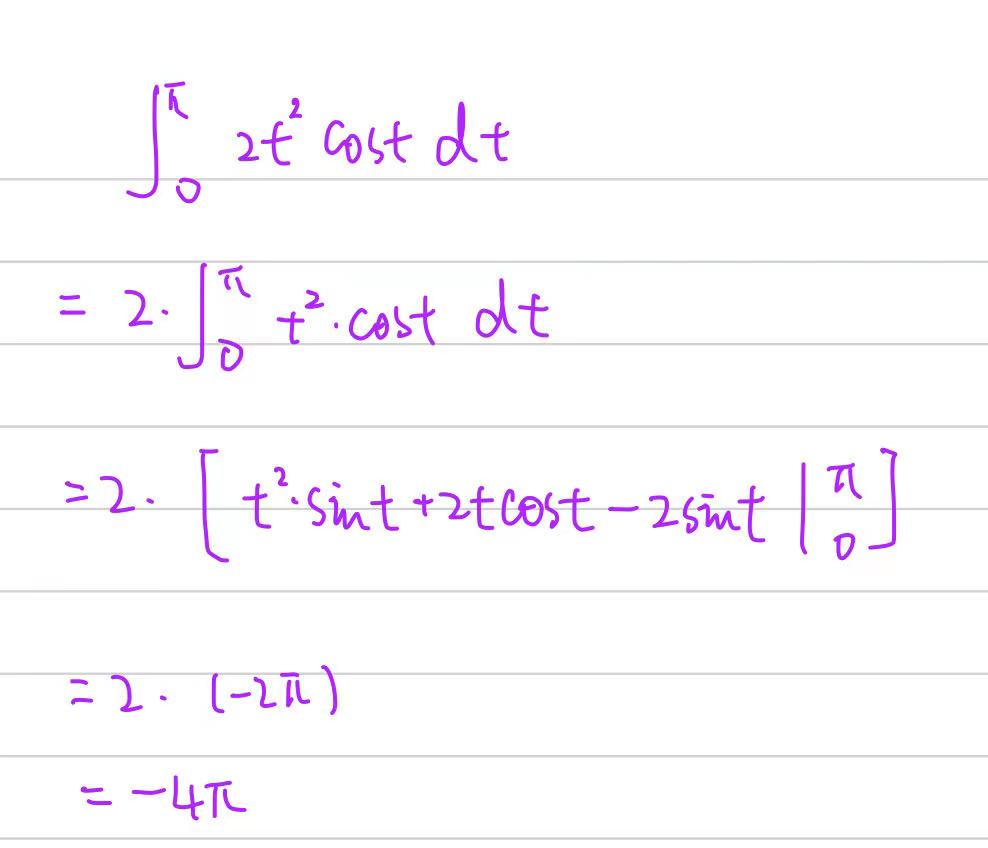 ∫₀^π 2t² cost dt
= 2·∫₀^π t²·cost dt
=2·[t²·sint+2tcost−2sint |₀^π]
=2·(−2π)
=−4π